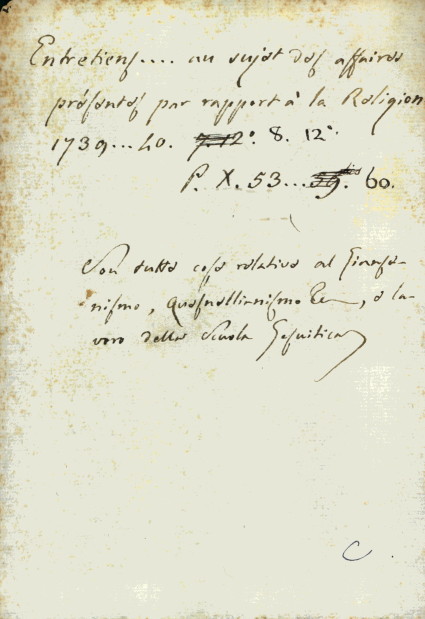 Entretiens.... au sujet des affaires
présentes par rapport à la Religion
1739...40. 8. 12°.
P. X. 53... 60.
Son tutte cose relative al Gianse-
nismo, Quesnellianismo &c, e la-
voro della Scuola Gesuitica
C.